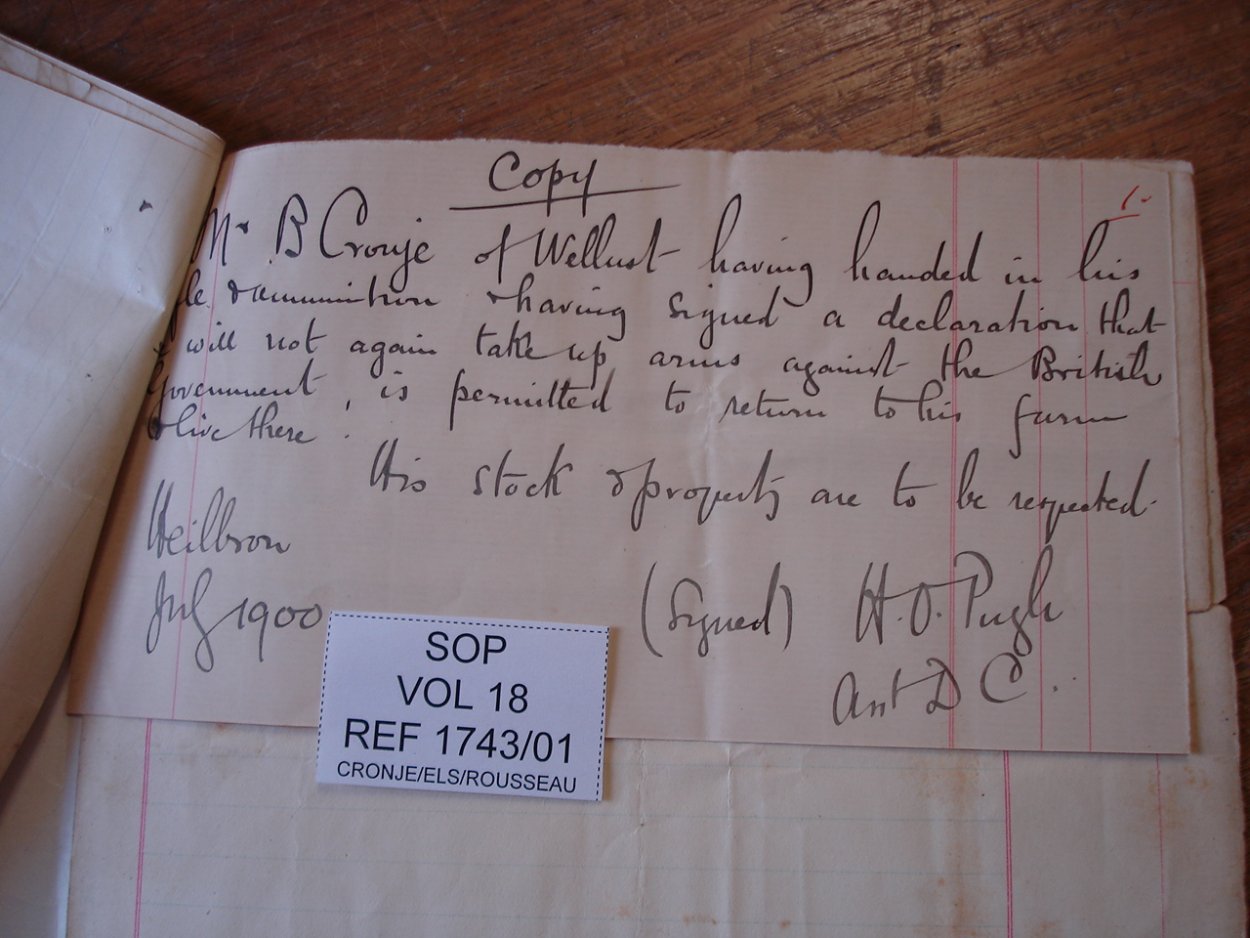 Copy
1.
Mr B Cronje of Wellust having handed in his
fle & ammunition & having signed a declaration that
will not again take up arms against the British
Government, is permitted to return to his farm
& live there.
His stock & property are to be respected.
Heilbron
July 1900
(Signed) H. O. Pugh
Asst D C.
SOP
VOL 18
REF 1743/01
CRONJE/ELS/ROUSSEAU